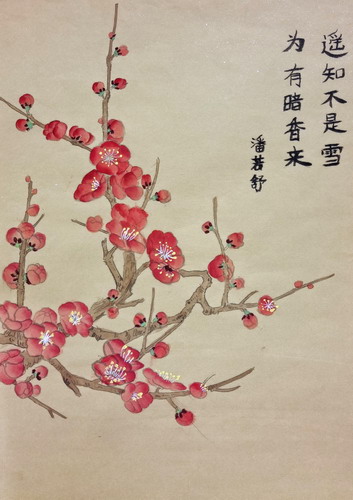 遥知不是雪
为有暗香来
潘若舒